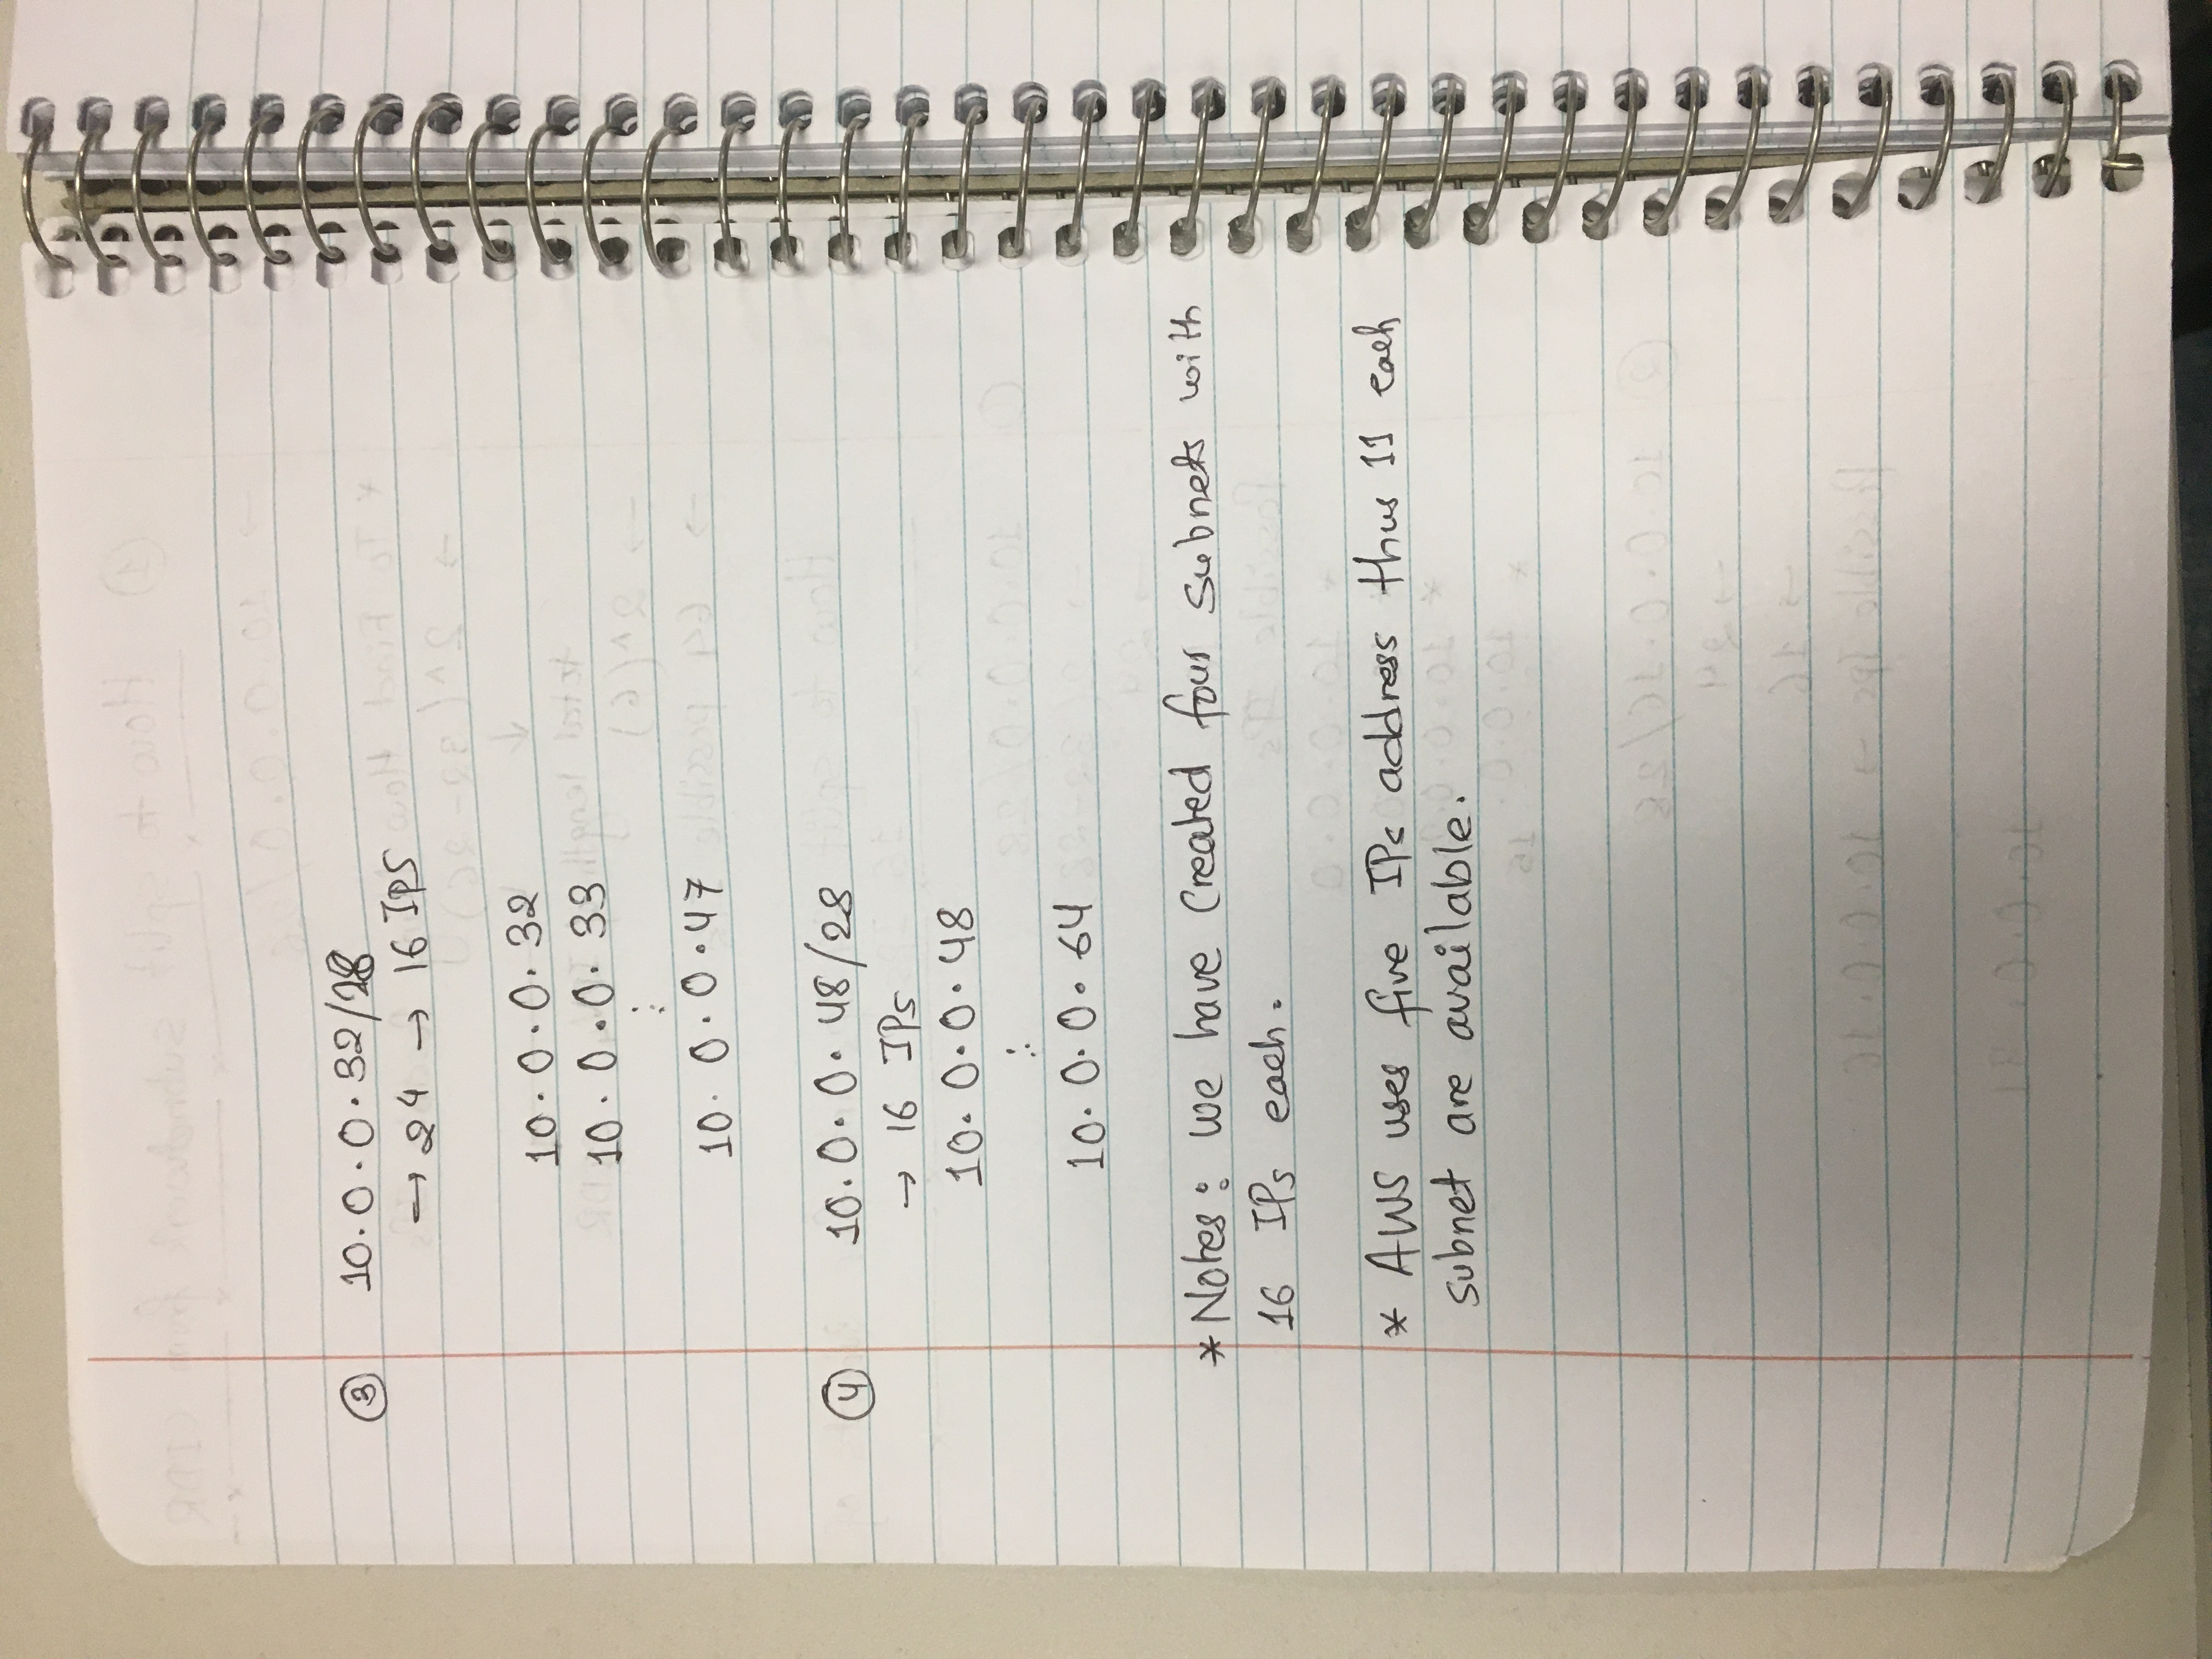 ③ 10.0.0.32/28
→ 24 → 16 IPS
10.0.0.32
10.0.0.33
⋮
10.0.0.47
④ 10.0.0.48/28
→ 16 IPs
10.0.0.48
⋮
10.0.0.64
* Notes: we have created four subnets with
16 IPs each.
* AWS uses five IPs address thus 11 each
subnet are available.